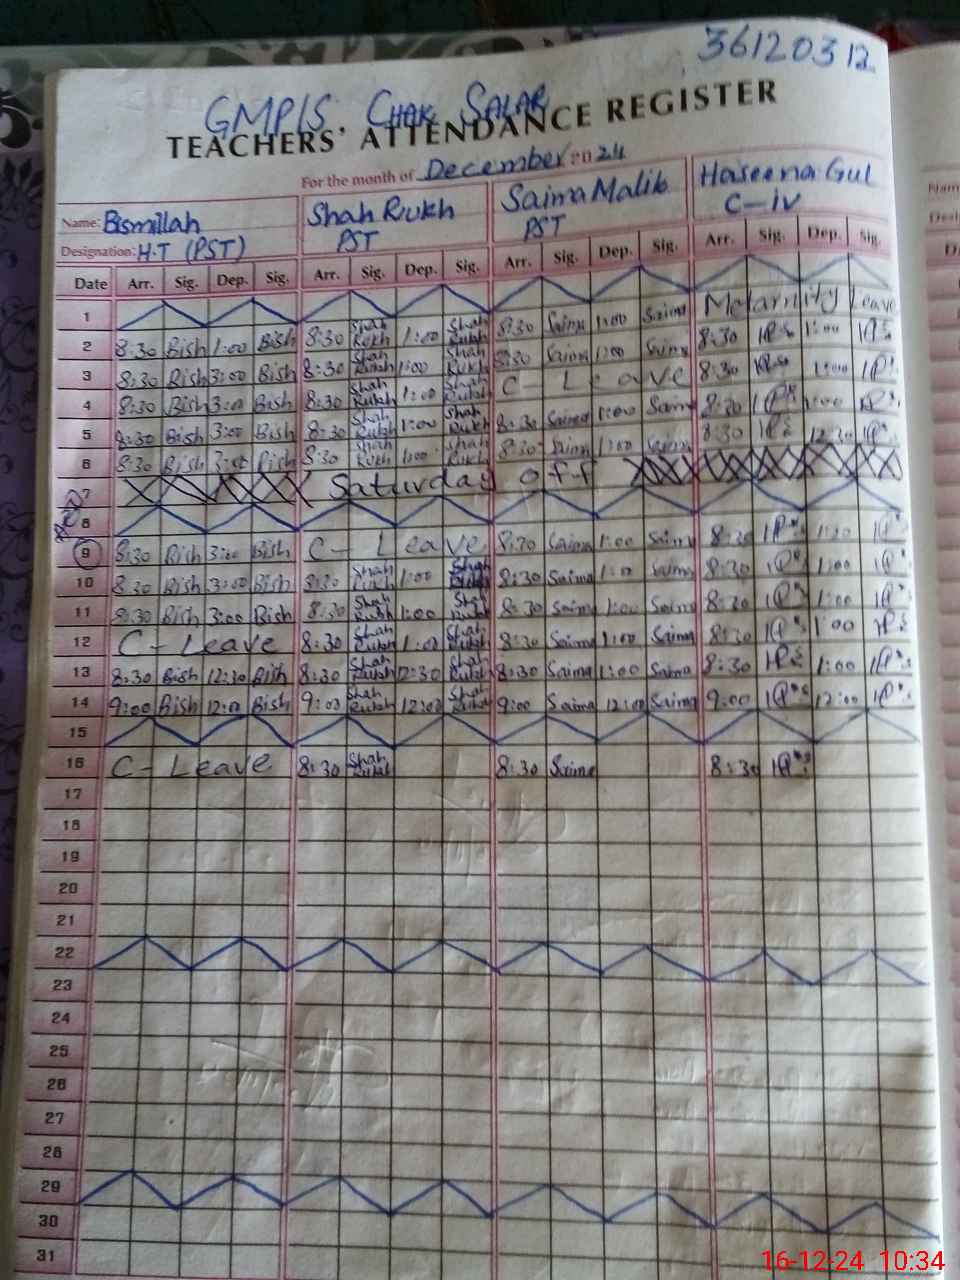 36120312
GMPIS. CHAK SALAR
TEACHERS' ATTENDANCE REGISTER
For the month of December 2024
Name: Bismillah Shah Rukh Saima Malik Haseena Gul
Designation: H.T (PST) PST PST C-iv
Date Arr. Sig. Dep. Sig. Arr. Sig. Dep. Sig. Arr. Sig. Dep. Sig. Arr. Sig. Dep. Sig.
1 Metarnity Leave
2 8:30 Bish 1:00 Bish 8:30 Shah Rukh 1:00 Shah Rukh 8:30 Saima 1:00 Saima 8:30 1:00
3 8:30 Bish 3:00 Bish 8:30 Shah Rukh 1:00 Shah Rukh 8:30 Saima 1:00 Saima 8:30 1:00
4 8:30 Bish 3:00 Bish 8:30 Shah Rukh 1:00 Shah Rukh C - Leave 8:30 1:00
5 8:30 Bish 3:00 Bish 8:30 Shah Rukh 1:00 Shah Rukh 8:30 Saima 1:00 Saima 8:30 12:30
6 8:30 Bish 3:00 Bish 8:30 Shah Rukh 1:00 Shah Rukh 8:30 Saima 1:00 Saima
7 Saturday off
8
9 8:30 Bish 3:00 Bish C - Leave 8:30 Saima 1:00 Saima 8:30 1:30
10 8:30 Bish 3:00 Bish 8:30 Shah Rukh 1:00 Shah Rukh 8:30 Saima 1:00 Saima 8:30 1:00
11 8:30 Bish 3:00 Bish 8:30 Shah Rukh 1:00 Shah Rukh 8:30 Saima 1:00 Saima 8:30 1:00
12 C - Leave 8:30 Shah Rukh 1:00 Shah Rukh 8:30 Saima 1:00 Saima 8:30 1:00
13 8:30 Bish 12:30 Bish 8:30 Shah Rukh 12:30 Shah Rukh 8:30 Saima 1:00 Saima 8:30 1:00
14 9:00 Bish 12:00 Bish 9:00 Shah Rukh 12:00 Shah Rukh 9:00 Saima 12:00 Saima 9:00 12:00
15
16 C - Leave 8:30 Shah Rukh 8:30 Saima 8:30
17
18
19
20
21
22
23
24
25
26
27
28
29
30
31
16-12-24 10:34